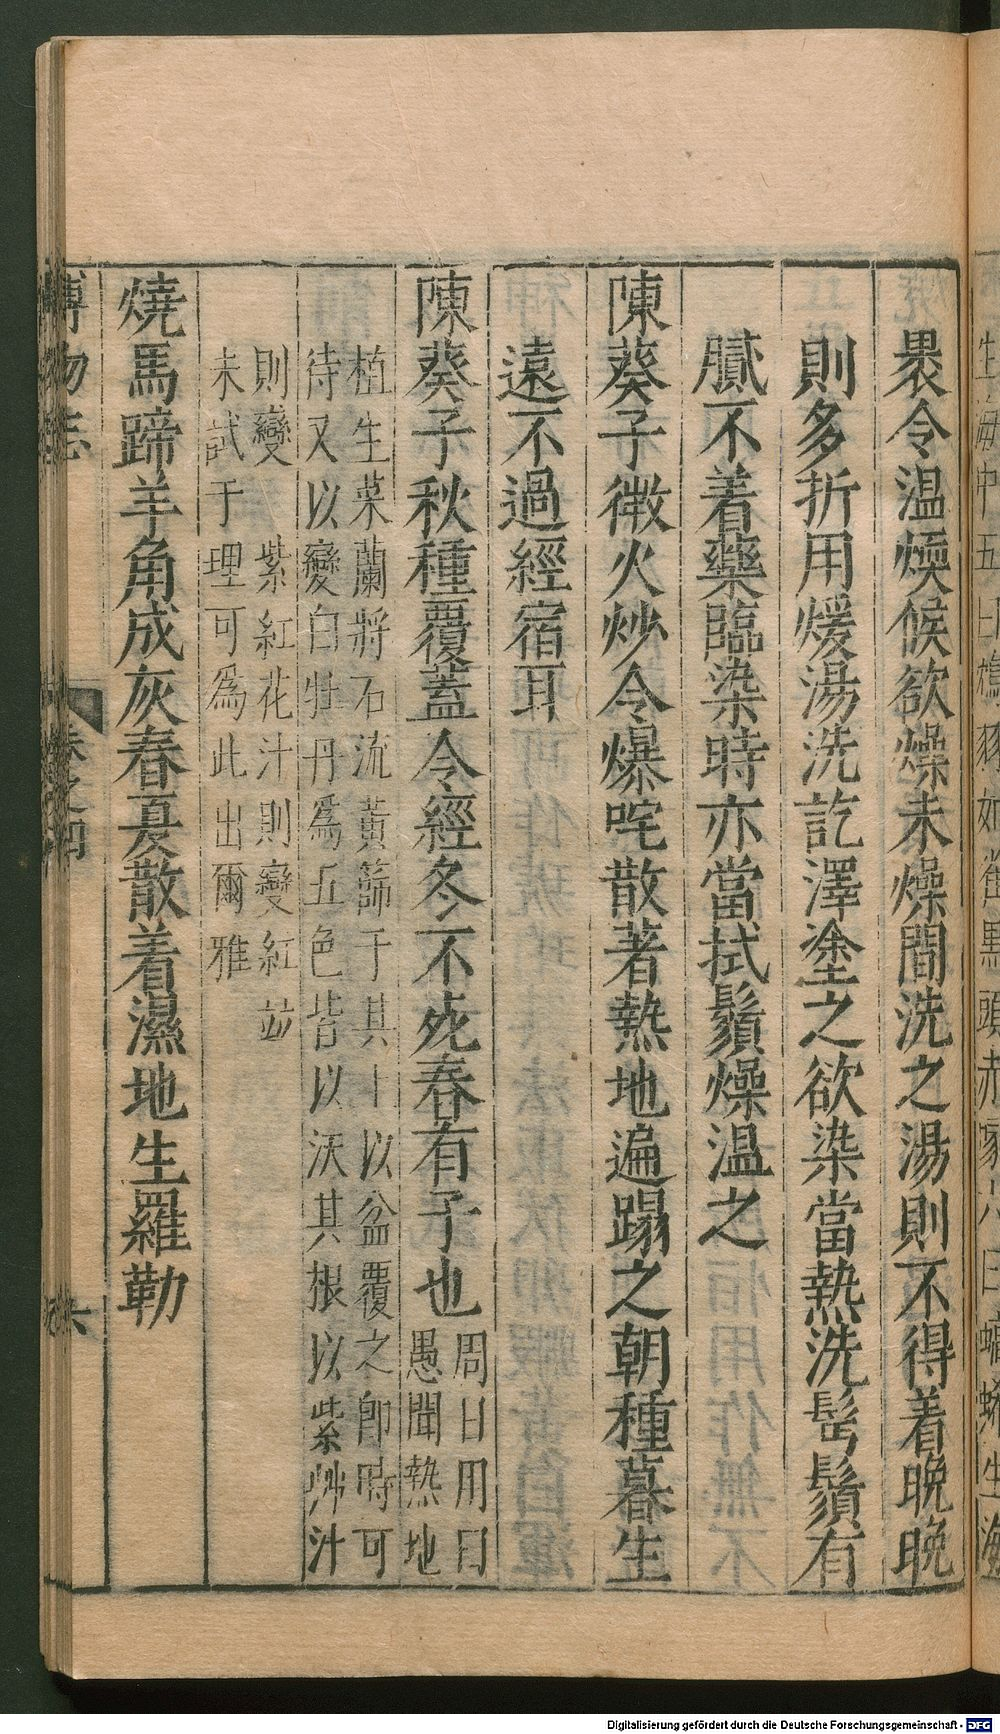 褁令温煗候欲燥未燥間洗之湯則不得着晚晚
則多折用煖湯洗訖澤塗之欲染當熱洗髩鬚有
膩不着藥臨染時亦當拭鬚燥温之
陳葵子微火炒令爆咤散著熱地遍蹋之朝種暮生
遠不過經宿耳
陳葵子秋種覆蓋令經冬不死春有子也
周日用曰
愚聞熱地
植生菜蘭將石流黃篩于其上以盆覆之即時可
待又以變白牡丹爲五色皆以沃其根以紫草汁
則變紫紅花汁則變紅並
未試于理可爲此出爾雅
燒馬蹄羊角成灰春夏散着濕地生羅勒
博物志 卷之四 六
Digitalisierung gefördert durch die Deutsche Forschungsgemeinschaft - DFG